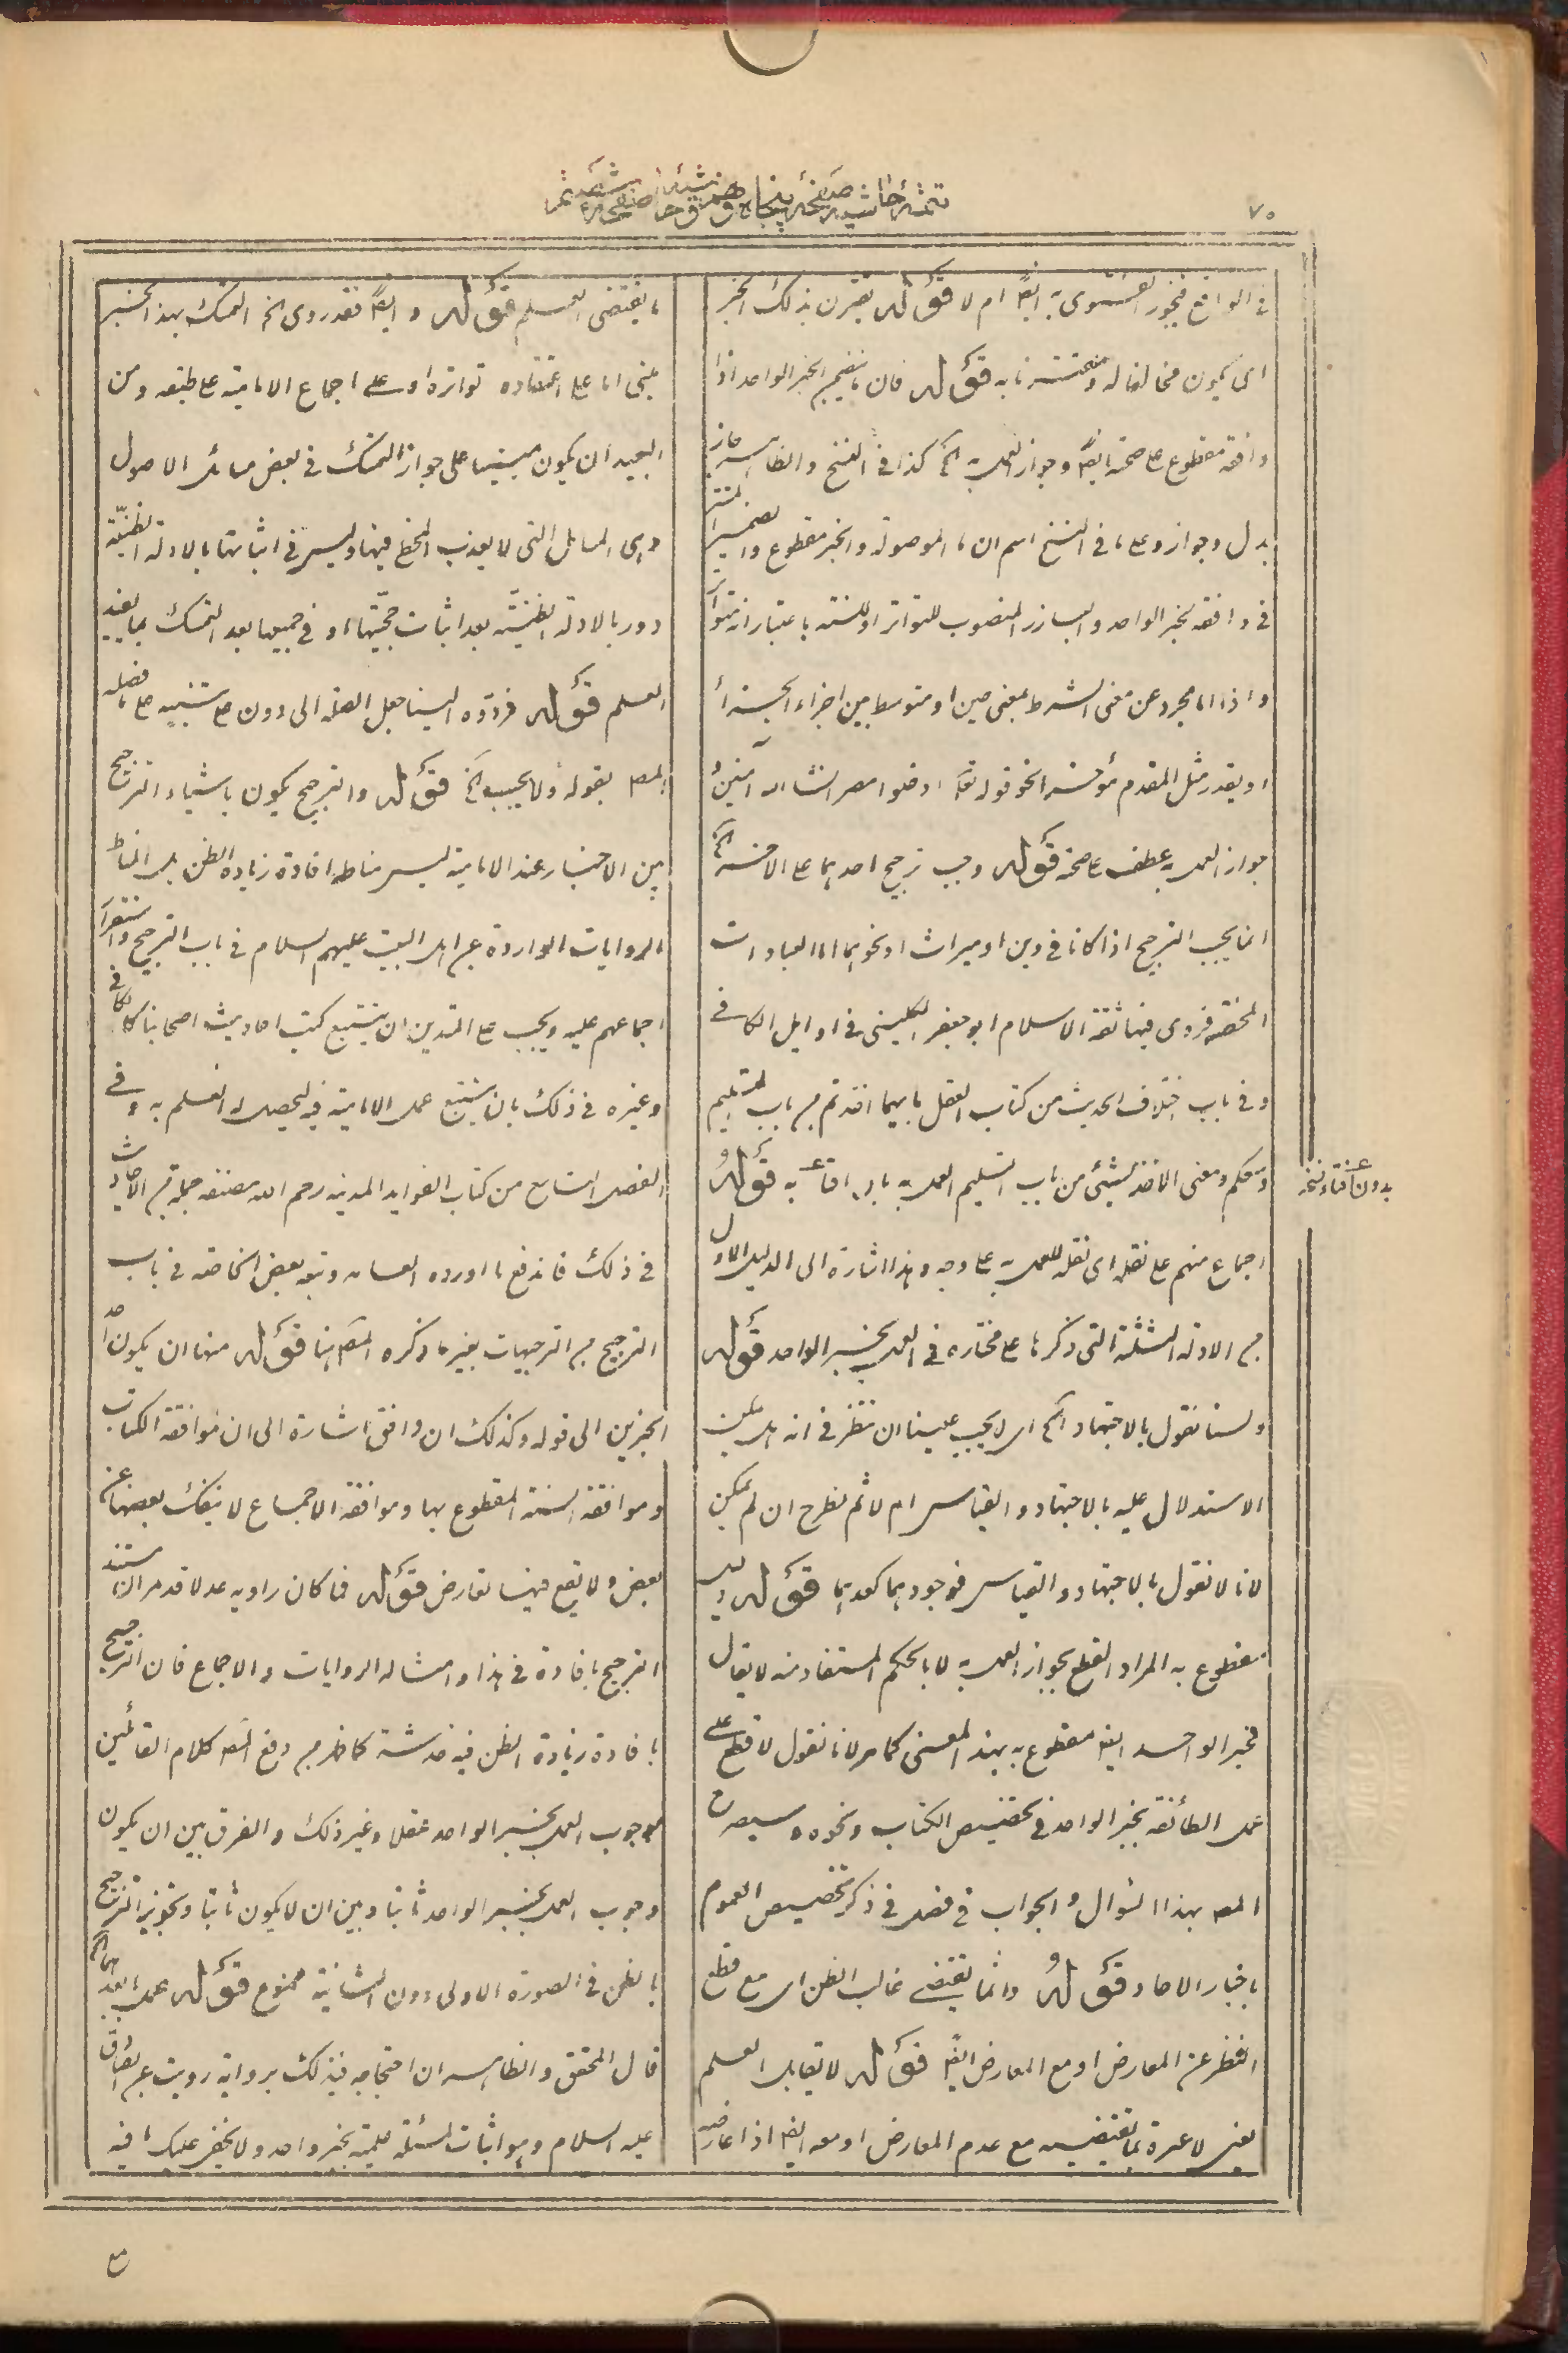 ٧٥
تتمهٔ حاشیهٔ صفحهٔ پنجاه و
فى الواقع فيجوز الفتوى به ايضا ام لا قوله يقترن بذلك الخبر
اى يكون مخالفا له قوله فان ما تضمنه الخبر الواحد اذا
وافقه مقطوع على صحته ايضا وجواز العمل به الخ كذا فى النسخ والظاهر جاز
بدل وجواز وعلى ما فى النسخ اسم ان ما الموصولة والخبر مقطوع والضمير المستتر
فى وافقه لخبر الواحد والبارز المنصوب للتواتر او للسنة باعتبار انه متواتر
واذا اما مجرد عن معنى الشرط بمعنى حين او متوسط بين اجزاء الجزاء
او يقدر مثل المقدم مؤخرا نحو قوله تعا ادخلوا مصر انشاء الله آمنين و
جواز العمل به عطف على صحته قوله وجب ترجيح احدهما على الآخر الخ
انما يجب الترجيح اذا كانا فى دين او ميراث او نحوهما اما العبادات
المحضة فروى فيها ثقة الاسلام ابو جعفر الكلينى فى اوايل الكافى
وفى باب اختلاف الحديث من كتاب العقل بايهما اخذتم من باب التسليم
وسعكم ومعنى الاخذ بشيئ من باب التسليم العمل به بلا افتاء به قوله
اجماع منهم على نقله اى نقله للعمل به على وجه وهذا اشارة الى الدليل الاول
من الادلة الثلثة التى ذكرها على مختاره فى العمل بخبر الواحد قوله
ولسنا نقول بالاجتهاد الخ اى لا يجب علينا ان ننظر فى انه هل يمكن
الاستدلال عليه بالاجتهاد والقياس ام لا ثم نطرح ان لم يمكن
لانا لا نقول بالاجتهاد والقياس فوجودهما كعدمهما قوله ليس
بمقطوع به المراد القطع بجواز العمل به لا بالحكم المستفاد منه لا يقال
خبر الواحد ايضا مقطوع به بهذا المعنى كما مر لانا نقول لا قطع على
عمل الطائفة بخبر الواحد فى تخصيص الكتاب ونحوه وسيصرح
المصـ بهذا السؤال والجواب فى فصل فى ذكر تخصيص العموم
باخبار الآحاد قوله وانما يقتضى غالب الظن اى مع قطع
النظر عن المعارض او مع المعارض ايضا قوله لا يقابل العلم
يعنى لا عبرة بما يقتضيه مع عدم المعارض او معه ايضا اذا عارضه
بدون افتاء نسخه
ما يقتضى العلم قوله وايضا فقد روى الخ التمسك بهذا الخبر
مبنى اما على اعتقاده تواتره او على اجماع الامامية على طبقه ومن
البعيد ان يكون مبنيا على جواز التمسك فى بعض مسائل الاصول
وهى المسائل التى لا يعذب المخطى فيها وليس فى اثباتها بالادلة الظنية
دور بالادلة الظنية بعد اثبات حجيتها او فى جميعها بعد التمسك بما يفيد
العلم قوله فردوه الينا جعل الصلة الى دون على تنبيه على ما فصله
المصـ بقوله ولا يجب الخ قوله والترجيح يكون باشياء الترجيح
بين الاخبار عند الامامية ليس مناطه افادة زيادة الظن بل المناط
الروايات الواردة عن اهل البيت عليهم السلام فى باب الترجيح واستقر
اجماعهم عليه ويجب على المتدين ان يتتبع كتب احاديث اصحابنا كالكافى
وغيره فى ذلك بان يتتبع عمل الامامية فيه ليحصل له العلم به وفى
الفصل التاسع من كتاب الفوايد المدنيه رحم الله مصنفه جملة من الاحاديث
فى ذلك فاندفع ما اورده العامه وتبعه بعض الخاصه فى باب
الترجيح من الترجيحات بغير ما ذكره المصـ هنا قوله منها ان يكون احد
الخبرين الى قوله وكذلك ان وافق اشارة الى ان موافقة الكتاب
وموافقة السنة المقطوع بها وموافقة الاجماع لا ينفك بعضها عن
بعض ولا يقع فيها تعارض قوله فما كان راويه عدلا قد مر ان مستند
الترجيح بافادة فى هذا وامثاله الروايات والاجماع فان الترجيح
بافادة زيادة الظن فيه خدشة كما ظهر من دفع المصـ كلام القائلين
بوجوب العمل بخبر الواحد عقلا وغير ذلك والفرق بين ان يكون
وجوب العمل بخبر الواحد ثابتا وبين ان لا يكون ثابتا وتجويز الترجيح
بالظن فى الصورة الاولى دون الثانية ممنوع قوله عمل بابعدهما الخ
قال المحقق والظاهر ان احتجاجه فى ذلك برواية رويت عن الصادق
عليه السلام وهو اثبات لمسئلة علمية بخبر واحد ولا يخفى عليك ما فيه
مع